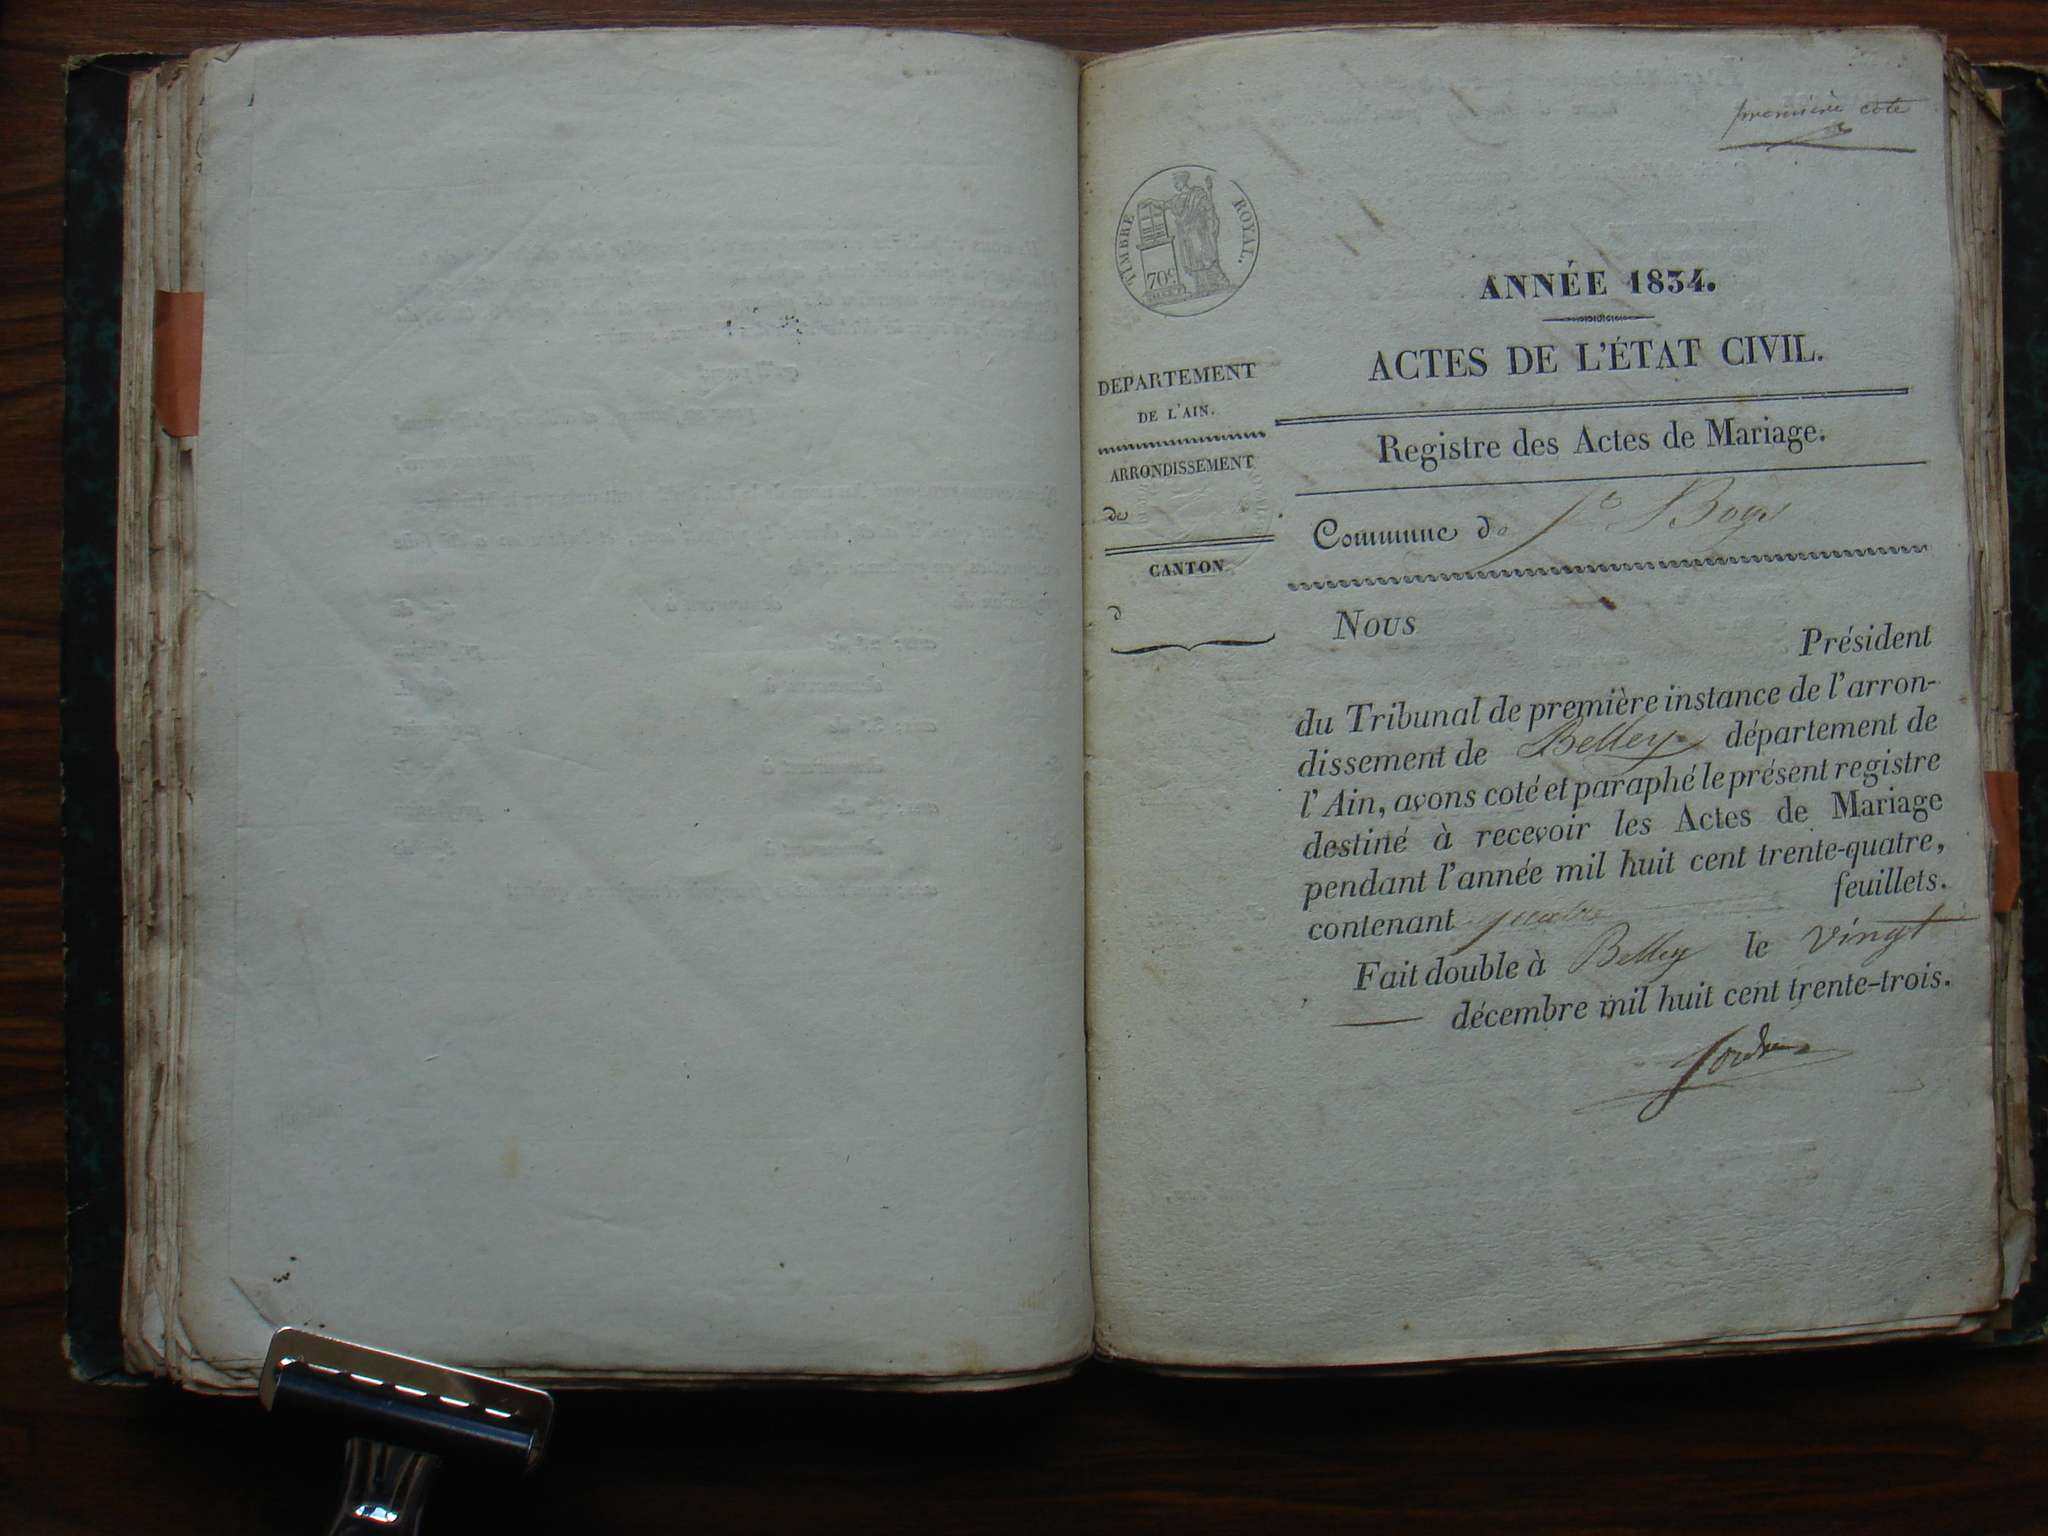 première cote
TIMBRE ROYAL.
70c.
ANNÉE 1834.
ACTES DE L'ÉTAT CIVIL.
DÉPARTEMENT
DE L'AIN.
Registre des Actes de Mariage.
ARRONDISSEMENT
de
Commune de St Boys
CANTON
d
Nous
Président
du Tribunal de première instance de l'arron-
dissement de Belley département de
l'Ain, avons coté et paraphé le présent registre
destiné à recevoir les Actes de Mariage
pendant l'année mil huit cent trente-quatre,
contenant quatre feuillets.
Fait double à Belley le vingt
décembre mil huit cent trente-trois.